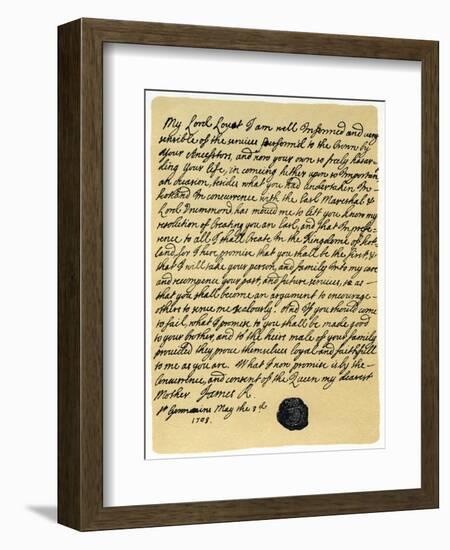 My Lord Lovat I am well Informed and very
sensible of the services performed to the Crown by
your Ancestors, and now your own so freely hazar-
ding your life, in comeing hither upon so Important
an occasion, besides what you had undertaken In
scotland In concurrence with the Earl Mareshal &
Lord Drummond has moved me to lett you know my
resolution of Creating you an Earl, and that In prefe-
rence to all I shall Create In the Kingdome of scot-
land, for I here promise that you shall be the first, &
that I will take your person, and family Into my care
and recompence your past, and future services, so as
that you shall become an argument to encourage
others to serve me zealously. And If you should come
to fail, what I promise to you shall be made good
to your brother, and to the heirs male of your family
provided they prove themselves loyal and faithfull
to me as you are. What I now promise is by the
Concurrence, and consent of the Queen my dearest
Mother James R.
St Germains May the 3d